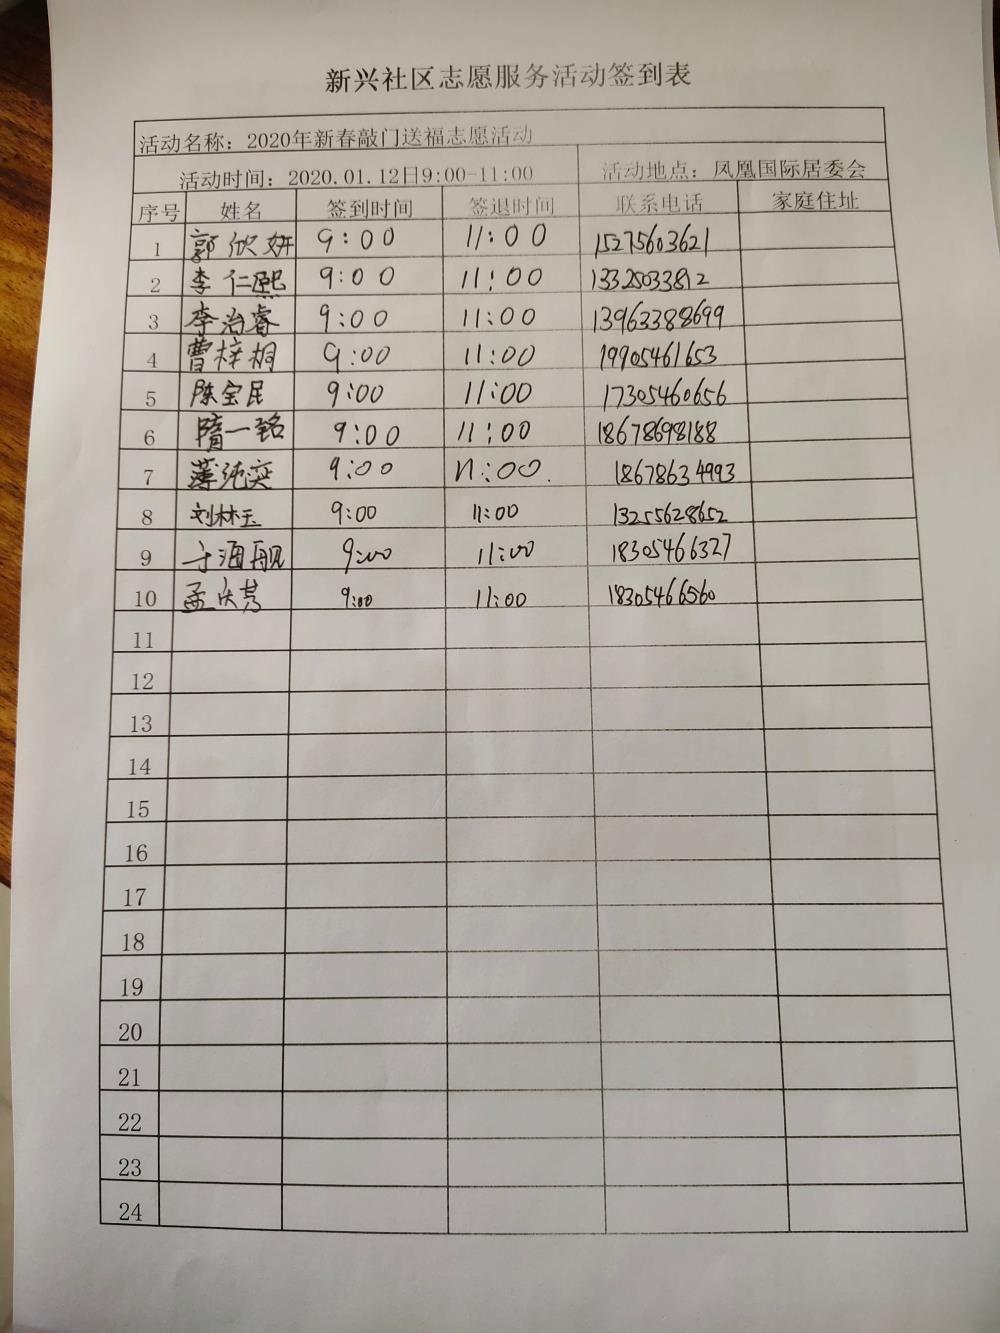 新兴社区志愿服务活动签到表
活动名称：2020年新春敲门送福志愿活动
活动时间：2020.01.12日9:00-11:00 活动地点：凤凰国际居委会
序号 姓名 签到时间 签退时间 联系电话 家庭住址
1 郭欣妍 9:00 11:00 15275603621
2 李仁熙 9:00 11:00 13325033812
3 李治睿 9:00 11:00 13963388699
4 曹梓桐 9:00 11:00 19905461653
5 陈宝民 9:00 11:00 17305460656
6 隋一铭 9:00 11:00 18678698188
7 薄纯奕 9:00 11:00. 18678634993
8 刘林玉 9:00 11:00 13255628652
9 于海舰 9:00 11:00 18305466327
10 孟庆 9:00 11:00 18305466560
11
12
13
14
15
16
17
18
19
20
21
22
23
24